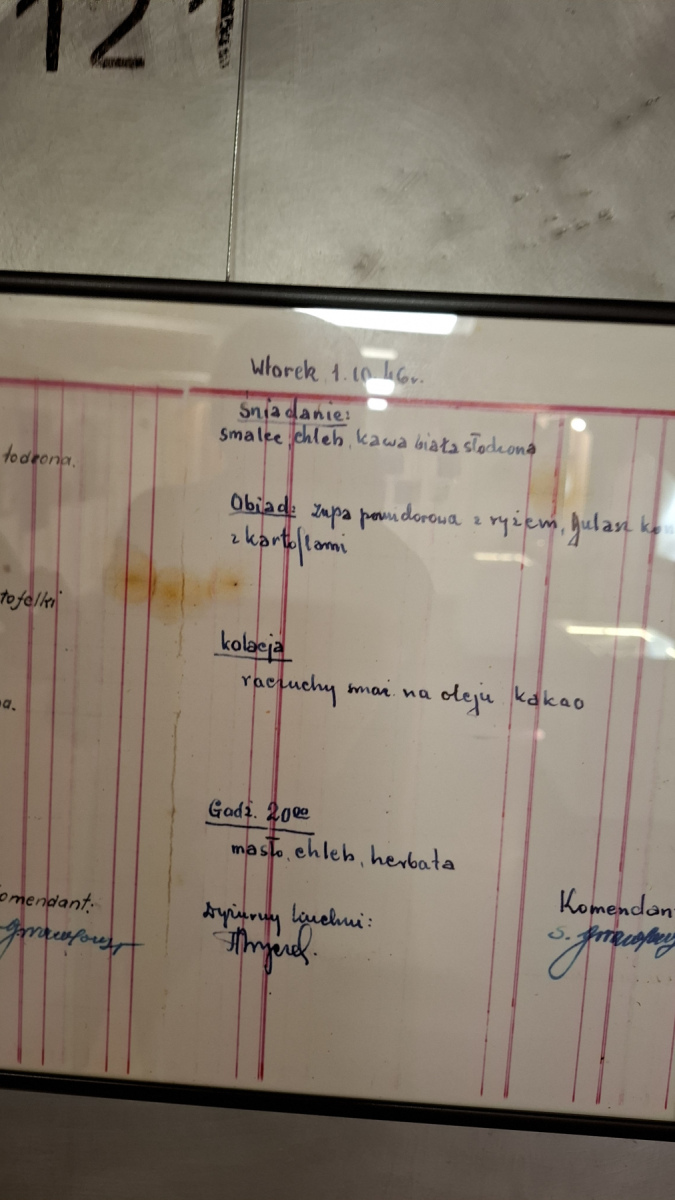 121
Wtorek 1.10.46r.
Śniadanie:
smalec, chleb, kawa biała słodzona
łodzona.
Obiad: zupa pomidorowa z ryżem, gulasz
z kartoflami
tofelki
kolacja
racuchy smaż. na oleju kakao
a.
Godz. 20⁰⁰
masło, chleb, herbata
omendant:
Dyżurny kuchni:
Komendan